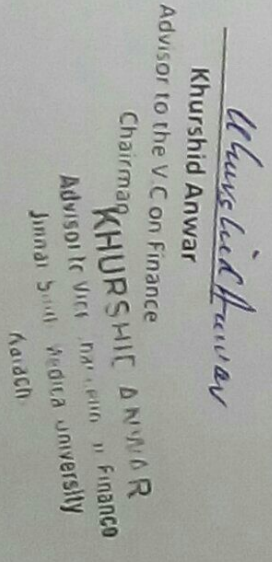 Khurshid Anwar
Khurshid Anwar
Advisor to the V.C on Finance
Chairman
KHURSHID ANWAR
Advisor to Vice Finance
Medica University
Karach